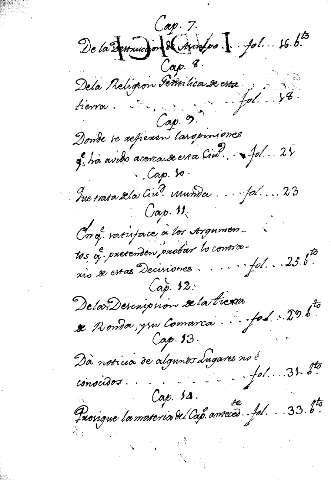 Cap. 7.
De la Destruccion de Acinipo... fol.... 16. bto
Cap. 8.
De la Religion Gentilica de esta
tierra.......... fol.... 18.
Cap. 9.
Donde se refieren las opiniones
q.e há avido acerca de esta Ciud.... fol... 21
Cap. 10.
Que trata de la Ciud. Munda.... fol.... 23
Cap. 11.
En q.e satisface á los Argumen-
tos q.e pretenden probar lo contra-
rio de estas Decisiones...... fol... 25. bto
Cap. 12.
De la Descripcion de la tierra
de Ronda, y su Comarca..... fol... 29. bto
Cap. 13.
Dà noticia de algunos Lugares no
conocidos............ fol... 31. bto
Cap. 14.
Prosigue la materia del Cap. antecedte.. fol... 33. bto